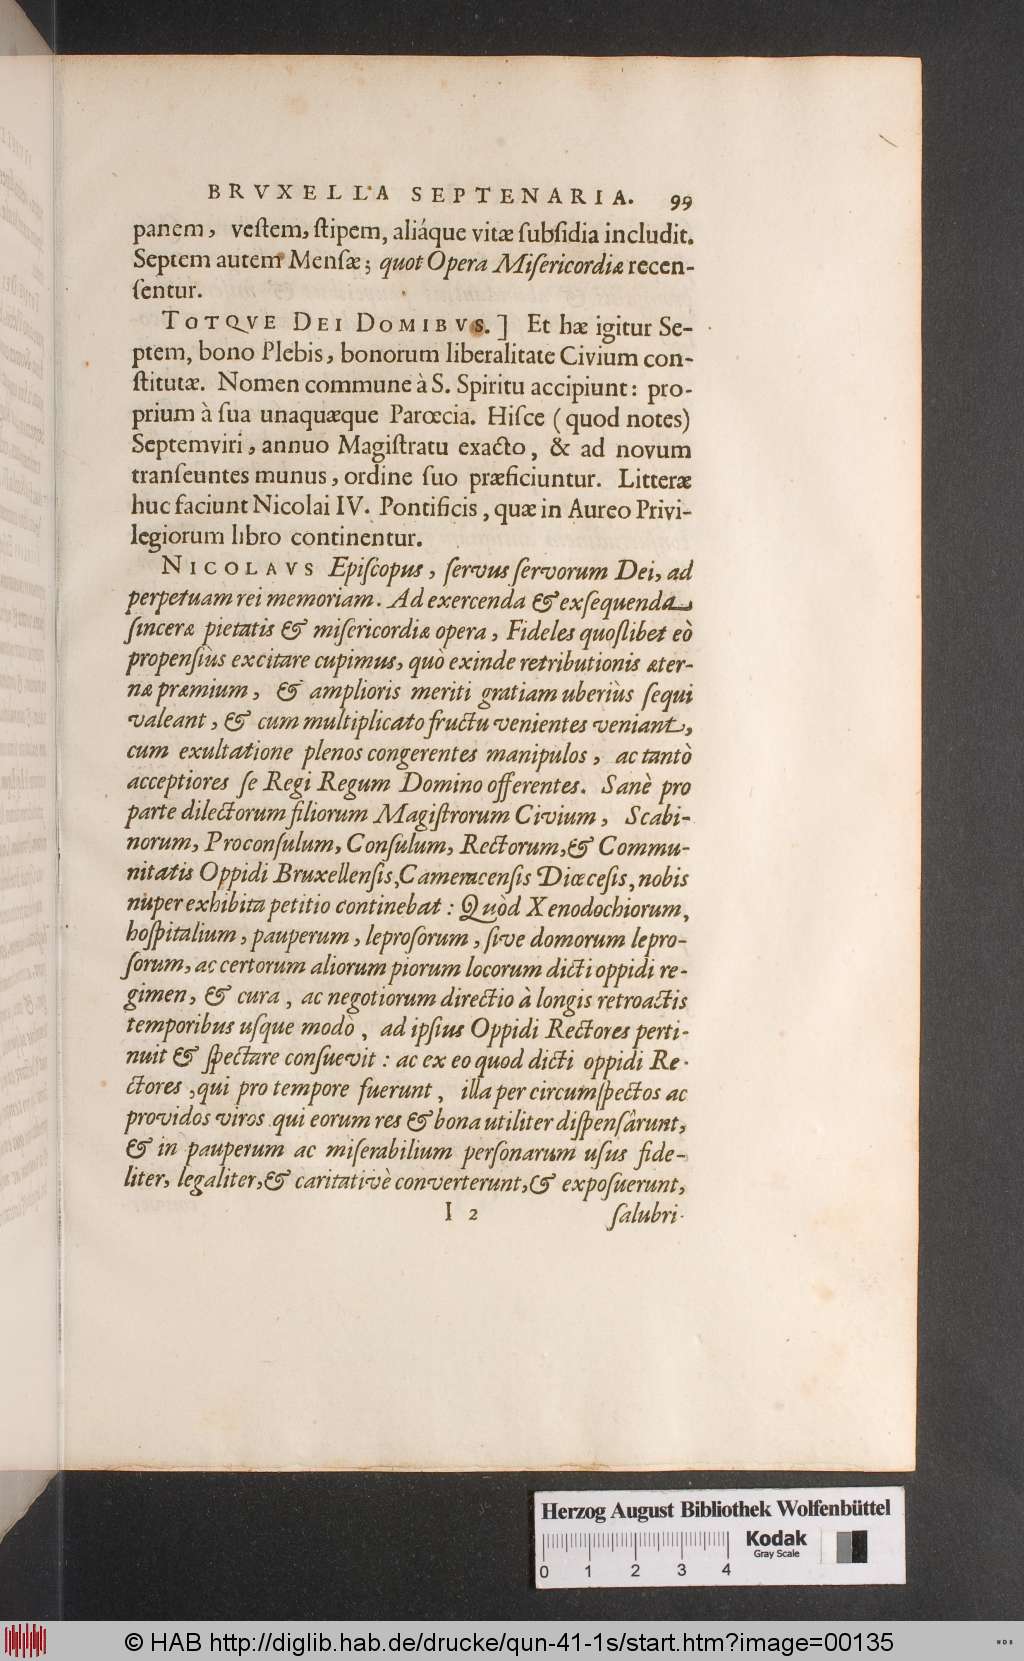 BRVXELLA SEPTENARIA. 99
panem, veſtem, ſtipem, aliáque vitæ ſubſidia includit.
Septem autem Menſæ; quot Opera Miſericordiæ recen-
ſentur.
TOTQVE DEI DOMIBVS.] Et hæ igitur Se-
ptem, bono Plebis, bonorum liberalitate Civium con-
ſtitutæ. Nomen commune à S. Spiritu accipiunt: pro-
prium à ſua unaquæque Parœcia. Hiſce (quod notes)
Septemviri, annuo Magiſtratu exacto, & ad novum
tranſeuntes munus, ordine ſuo præficiuntur. Litteræ
huc faciunt Nicolai IV. Pontificis, quæ in Aureo Privi-
legiorum libro continentur.
NICOLAVS Epiſcopus, ſervus ſervorum Dei, ad
perpetuam rei memoriam. Ad exercenda & exſequenda,
ſinceræ pietatis & miſericordiæ opera, Fideles quoſlibet eò
propenſius excitare cupimus, quò exinde retributionis æter-
næ præmium, & amplioris meriti gratiam uberiùs ſequi
valeant, & cum multiplicato fructu venientes veniant,
cum exultatione plenos congerentes manipulos, ac tantò
acceptiores ſe Regi Regum Domino offerentes. Sanè pro
parte dilectorum filiorum Magiſtrorum Civium, Scabi-
norum, Proconſulum, Conſulum, Rectorum, & Commu-
nitatis Oppidi Bruxellenſis, Cameracenſis Diœceſis, nobis
nuper exhibita petitio continebat: Quòd Xenodochiorum,
hoſpitalium, pauperum, leproſorum, ſive domorum lepro-
ſorum, ac certorum aliorum piorum locorum dicti oppidi re-
gimen, & cura, ac negotiorum directio à longis retroactis
temporibus uſque modò, ad ipſius Oppidi Rectores perti-
nuit & ſpectare conſuevit: ac ex eo quod dicti oppidi Re-
ctores, qui pro tempore fuerunt, illa per circumſpectos ac
providos viros qui eorum res & bona utiliter diſpensârunt,
& in pauperum ac miſerabilium perſonarum uſus fide-
liter, legaliter, & caritativè converterunt, & expoſuerunt,
I 2 ſalubri-
Herzog August Bibliothek Wolfenbüttel
Kodak
Gray Scale
0 1 2 3 4
© HAB http://diglib.hab.de/drucke/qun-41-1s/start.htm?image=00135